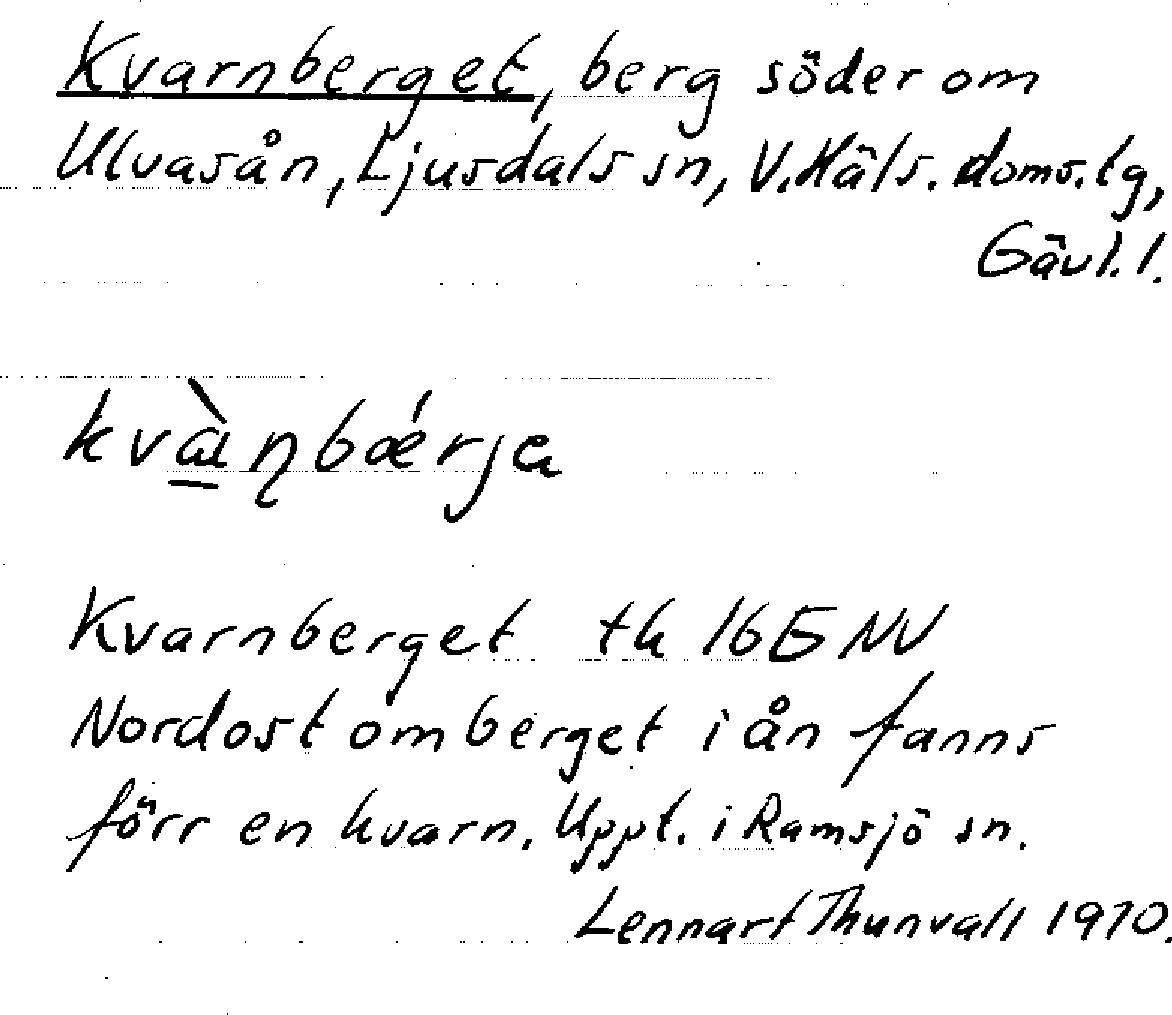 Kvarnberget, berg söder om
Ulvasån, Ljusdals sn, V. Häls. doms.lg,
Gävl. l.
Kvarnberget tk 16G NV
Nordost om berget i ån fanns
förr en kvarn. Uppt. i Ramsjö sn.
Lennart Thunvall 1970.